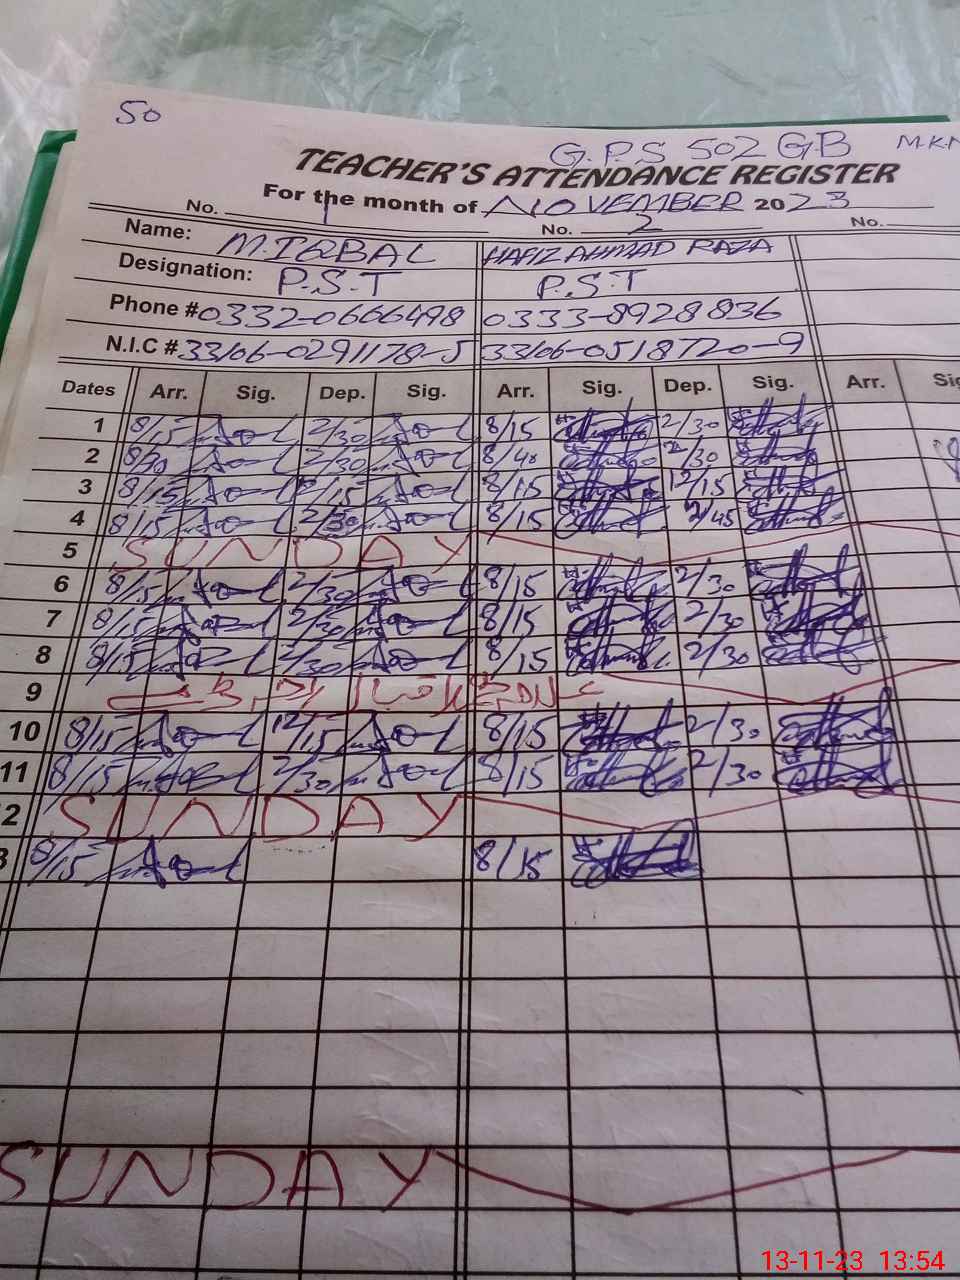 50
G.P.S 502 GB M.K.N
TEACHER'S ATTENDANCE REGISTER
For the month of NOVEMBER 2023
No. 1 No. 2 No.
Name: M.IQBAL HAFIZ AHMAD RAZA
Designation: P.S.T P.S.T
Phone # 0332-0666498 0333-8928836
N.I.C # 33106-0291178-5 33106-0518720-9
Dates Arr. Sig. Dep. Sig. Arr. Sig. Dep. Sig. Arr. Sig
1 8/15 2/30 8/15 2/30
2 8/30 2/30 8/40 2/30
3 8/15 12/15 8/15 12/15
4 8/15 2/30 8/15 2/45
5 SUNDAY
6 8/15 2/30 8/15 2/30
7 8/15 2/30 8/15 2/30
8 8/15 2/30 8/15 2/30
9
10 8/15 12/15 8/15 2/30
11 8/15 2/30 8/15 2/30
2 SUNDAY
3 8/15 8/15
SUNDAY
13-11-23 13:54